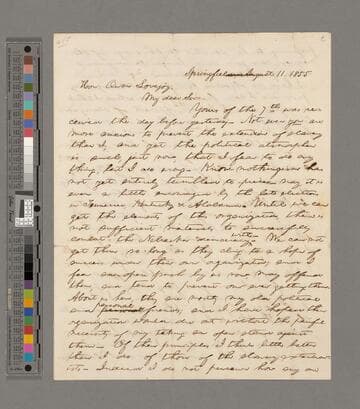 Springfield August 11. 1855
Hon: Owen Lovejoy:
My dear Sir:
Yours of the 7th was re-
ceived the day before yesterday. Not even you are
more anxious to prevent the extension of slavery
than I; and yet the political atmosphere
is such, just now, that I fear to do any
thing, lest I do wrong. Know-nothingism has
not yet entirely tumbled to pieces— nay, it is
even a little encouraged by the late elections
in Tennessee, Kentucky & Alabama. Until we can
get the elements of this organization, there is
not sufficient materials to successfully
combat the Nebraska democracy with. We can not
get them so long as they cling to a hope of
success under their own organization; and I
fear an open push by us now, may offend
them, and tend to prevent our ever getting them.
About us here, they are mostly my old political
and personal friends; and I have hoped their or-
ganization would die out without the painful
necessity of my taking an open stand against
them. Of their principles I think little better
than I do of those of the slavery extension-
ists. Indeed I do not perceive how any one